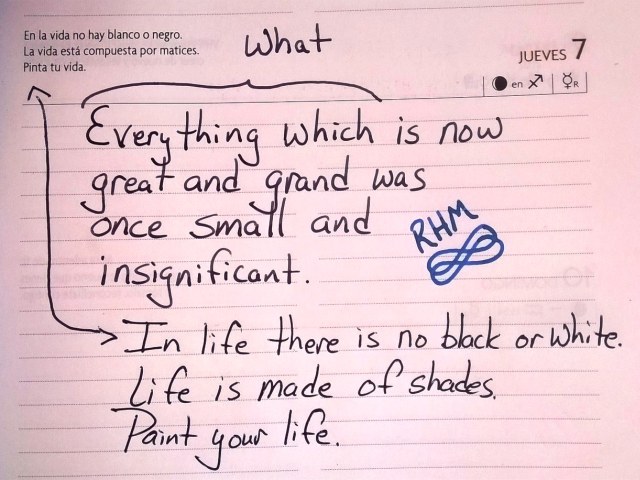 En la vida no hay blanco o negro.
La vida está compuesta por matices.
Pinta tu vida.
What
JUEVES 7
en
R
Everything which is now
great and grand was
once small and
insignificant.
RHM
In life there is no black or white.
Life is made of shades.
Paint your life.